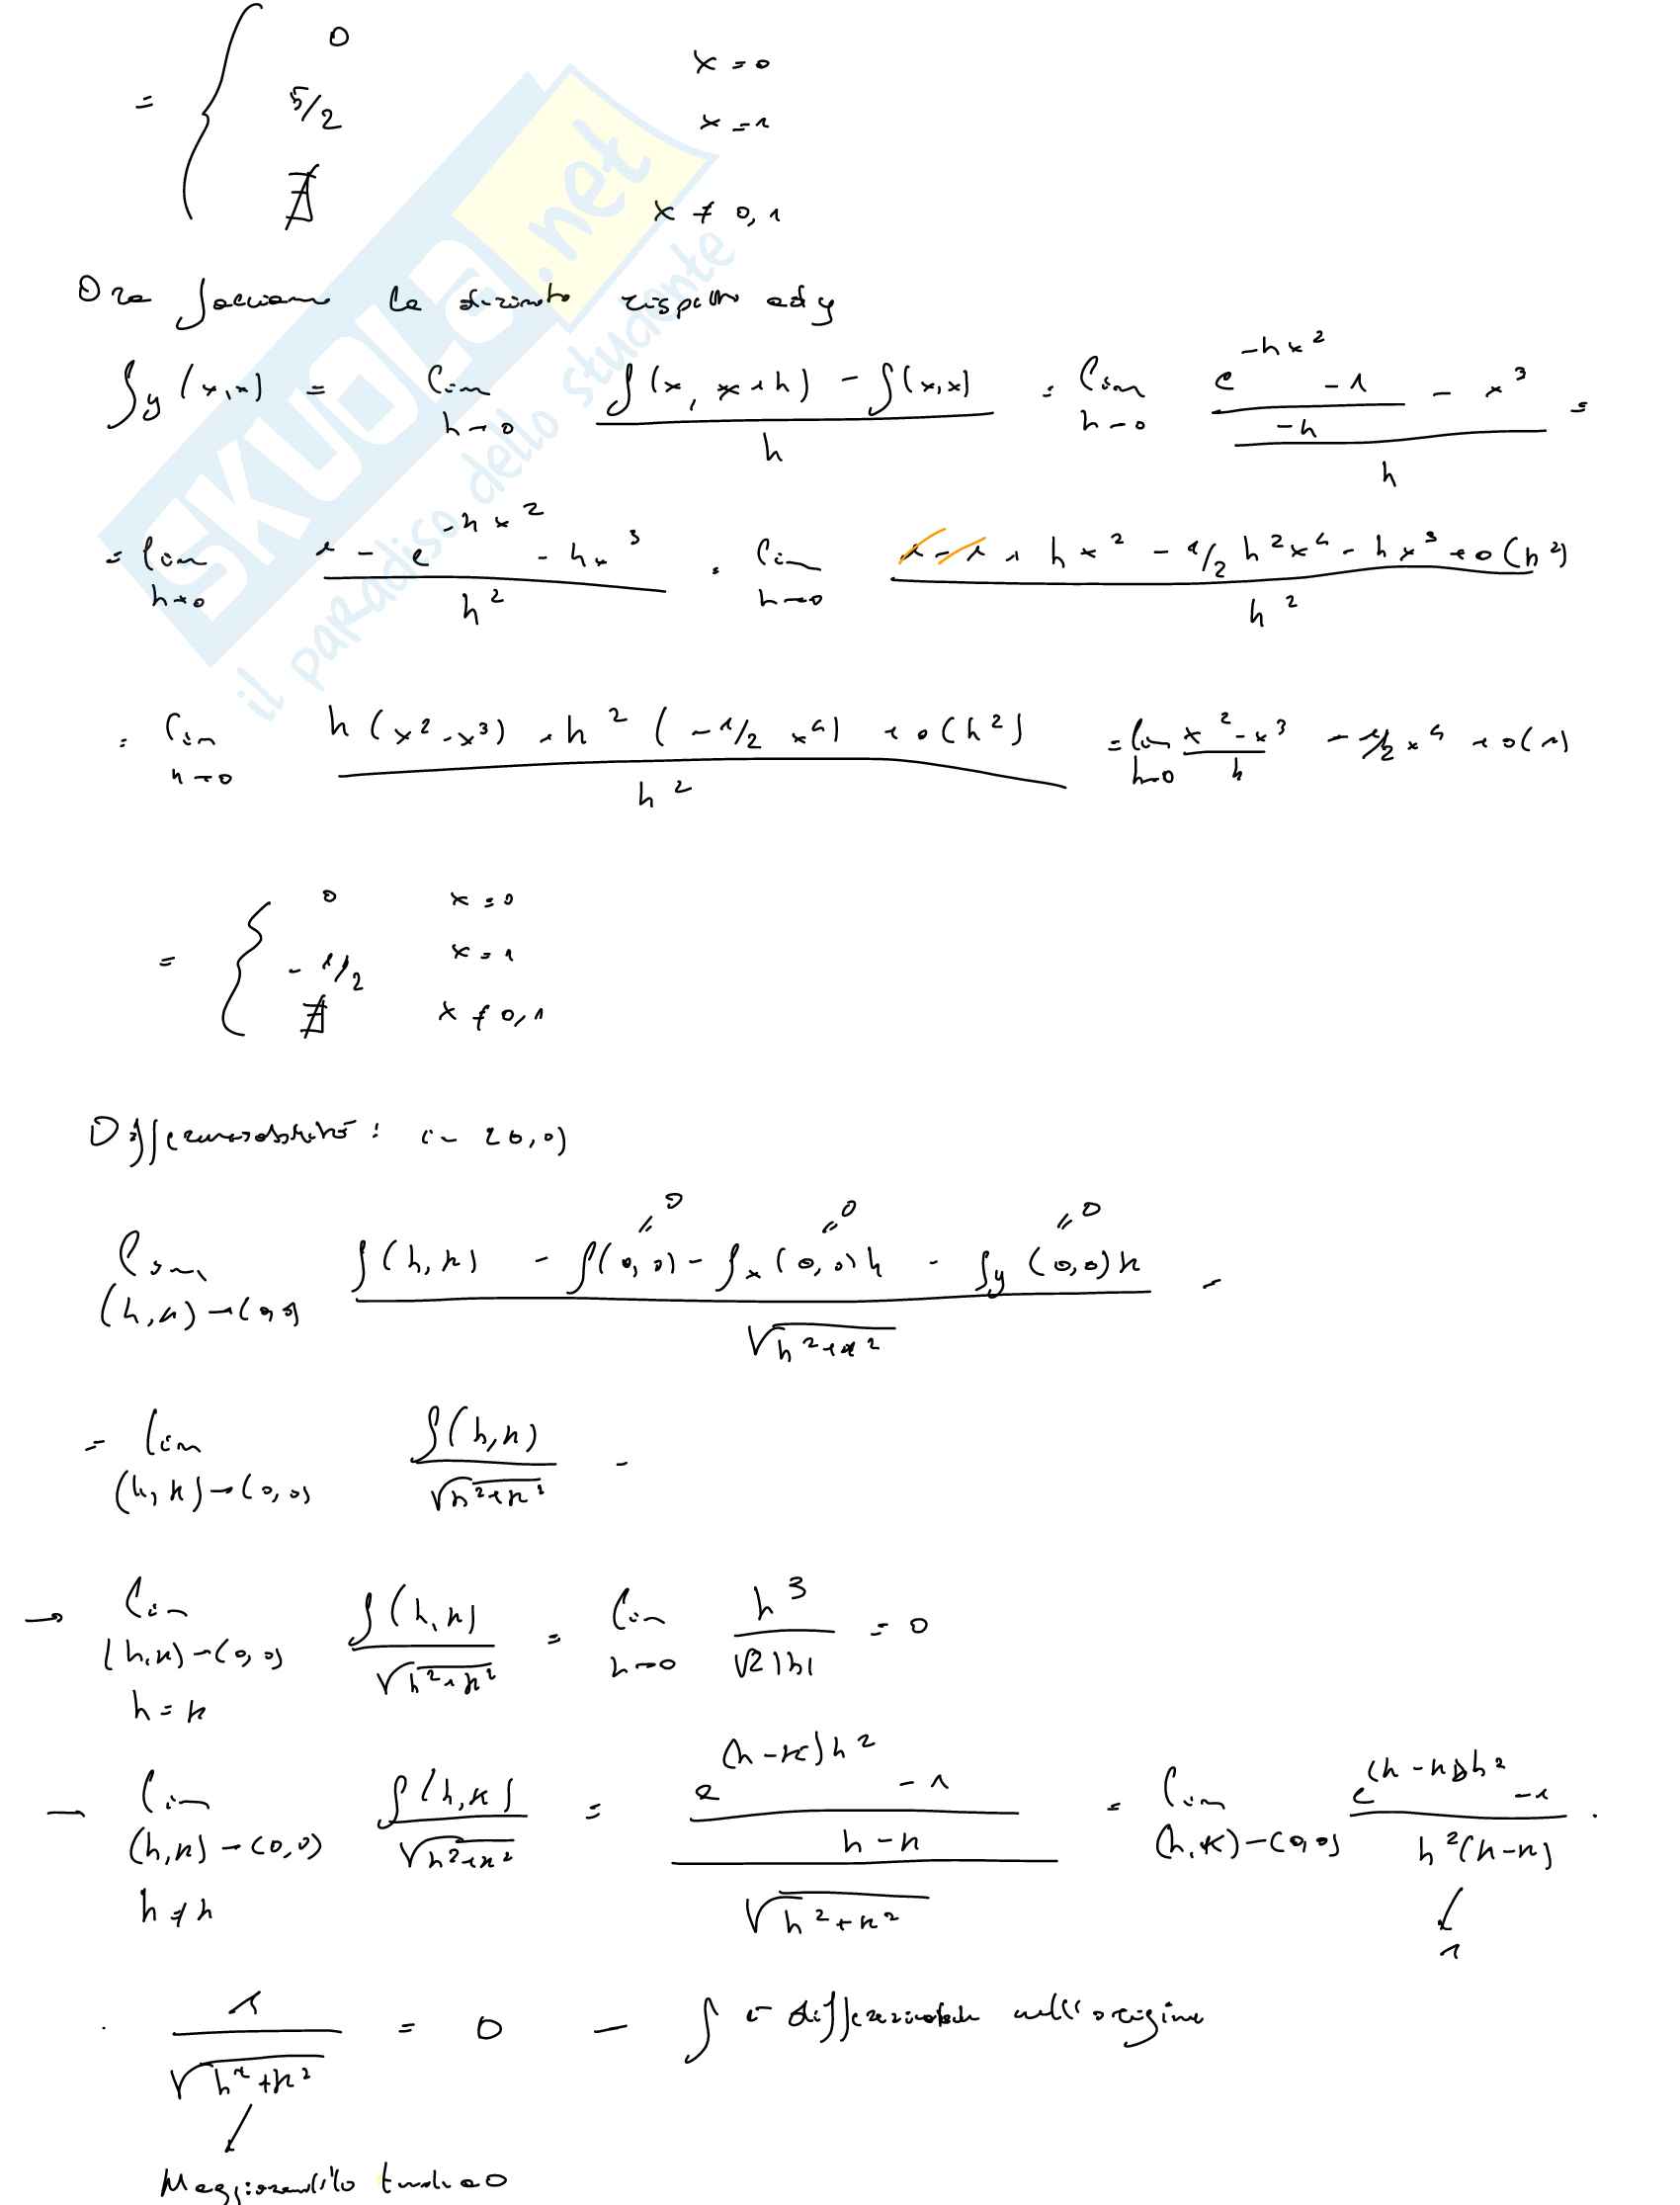 = { 0 x = 0
5/2 x = 1
∄ x ≠ 0, 1
SKUOLA.net
il paradiso dello studente
Ora facciamo la derivata rispetto ad y
f_y (x,x) = lim_{h→0} (f(x, x+h) - f(x,x))/h = lim_{h→0} ((e^{-hx^2} - 1)/(-h) - x^3)/h =
= lim_{h→0} (1 - e^{-hx^2} - hx^3)/h^2 = lim_{h→0} (1 - 1 + hx^2 - 1/2 h^2x^4 - hx^3 + o(h^2))/h^2
= lim_{h→0} (h(x^2 - x^3) + h^2(-1/2 x^4) + o(h^2))/h^2 = lim_{h→0} (x^2 - x^3)/h - 1/2 x^4 + o(1)
= { 0 x = 0
- 1/2 x = 1
∄ x ≠ 0, 1
Differenziabilità : in (0,0)
= 0 = 0 = 0
lim_{(h,k)→(0,0)} (f(h,k) - f(0,0) - f_x(0,0)h - f_y(0,0)k)/√(h^2+k^2) =
= lim_{(h,k)→(0,0)} f(h,k)/√(h^2+k^2) =
→ lim_{(h,k)→(0,0) h=k} f(h,k)/√(h^2+k^2) = lim_{h→0} h^3/(√2|h|) = 0
→ lim_{(h,k)→(0,0) h≠k} f(h,k)/√(h^2+k^2) = ((e^{(h-k)h^2} - 1)/(h-k))/√(h^2+k^2) = lim_{(h,k)→(0,0)} (e^{(h-k)h^2} - 1)/(h^2(h-k)) ·
↓ 1
· 1/√(h^2+k^2) = 0 → f è differenziabile nell'origine
↓
Maggiorandolo tende a 0